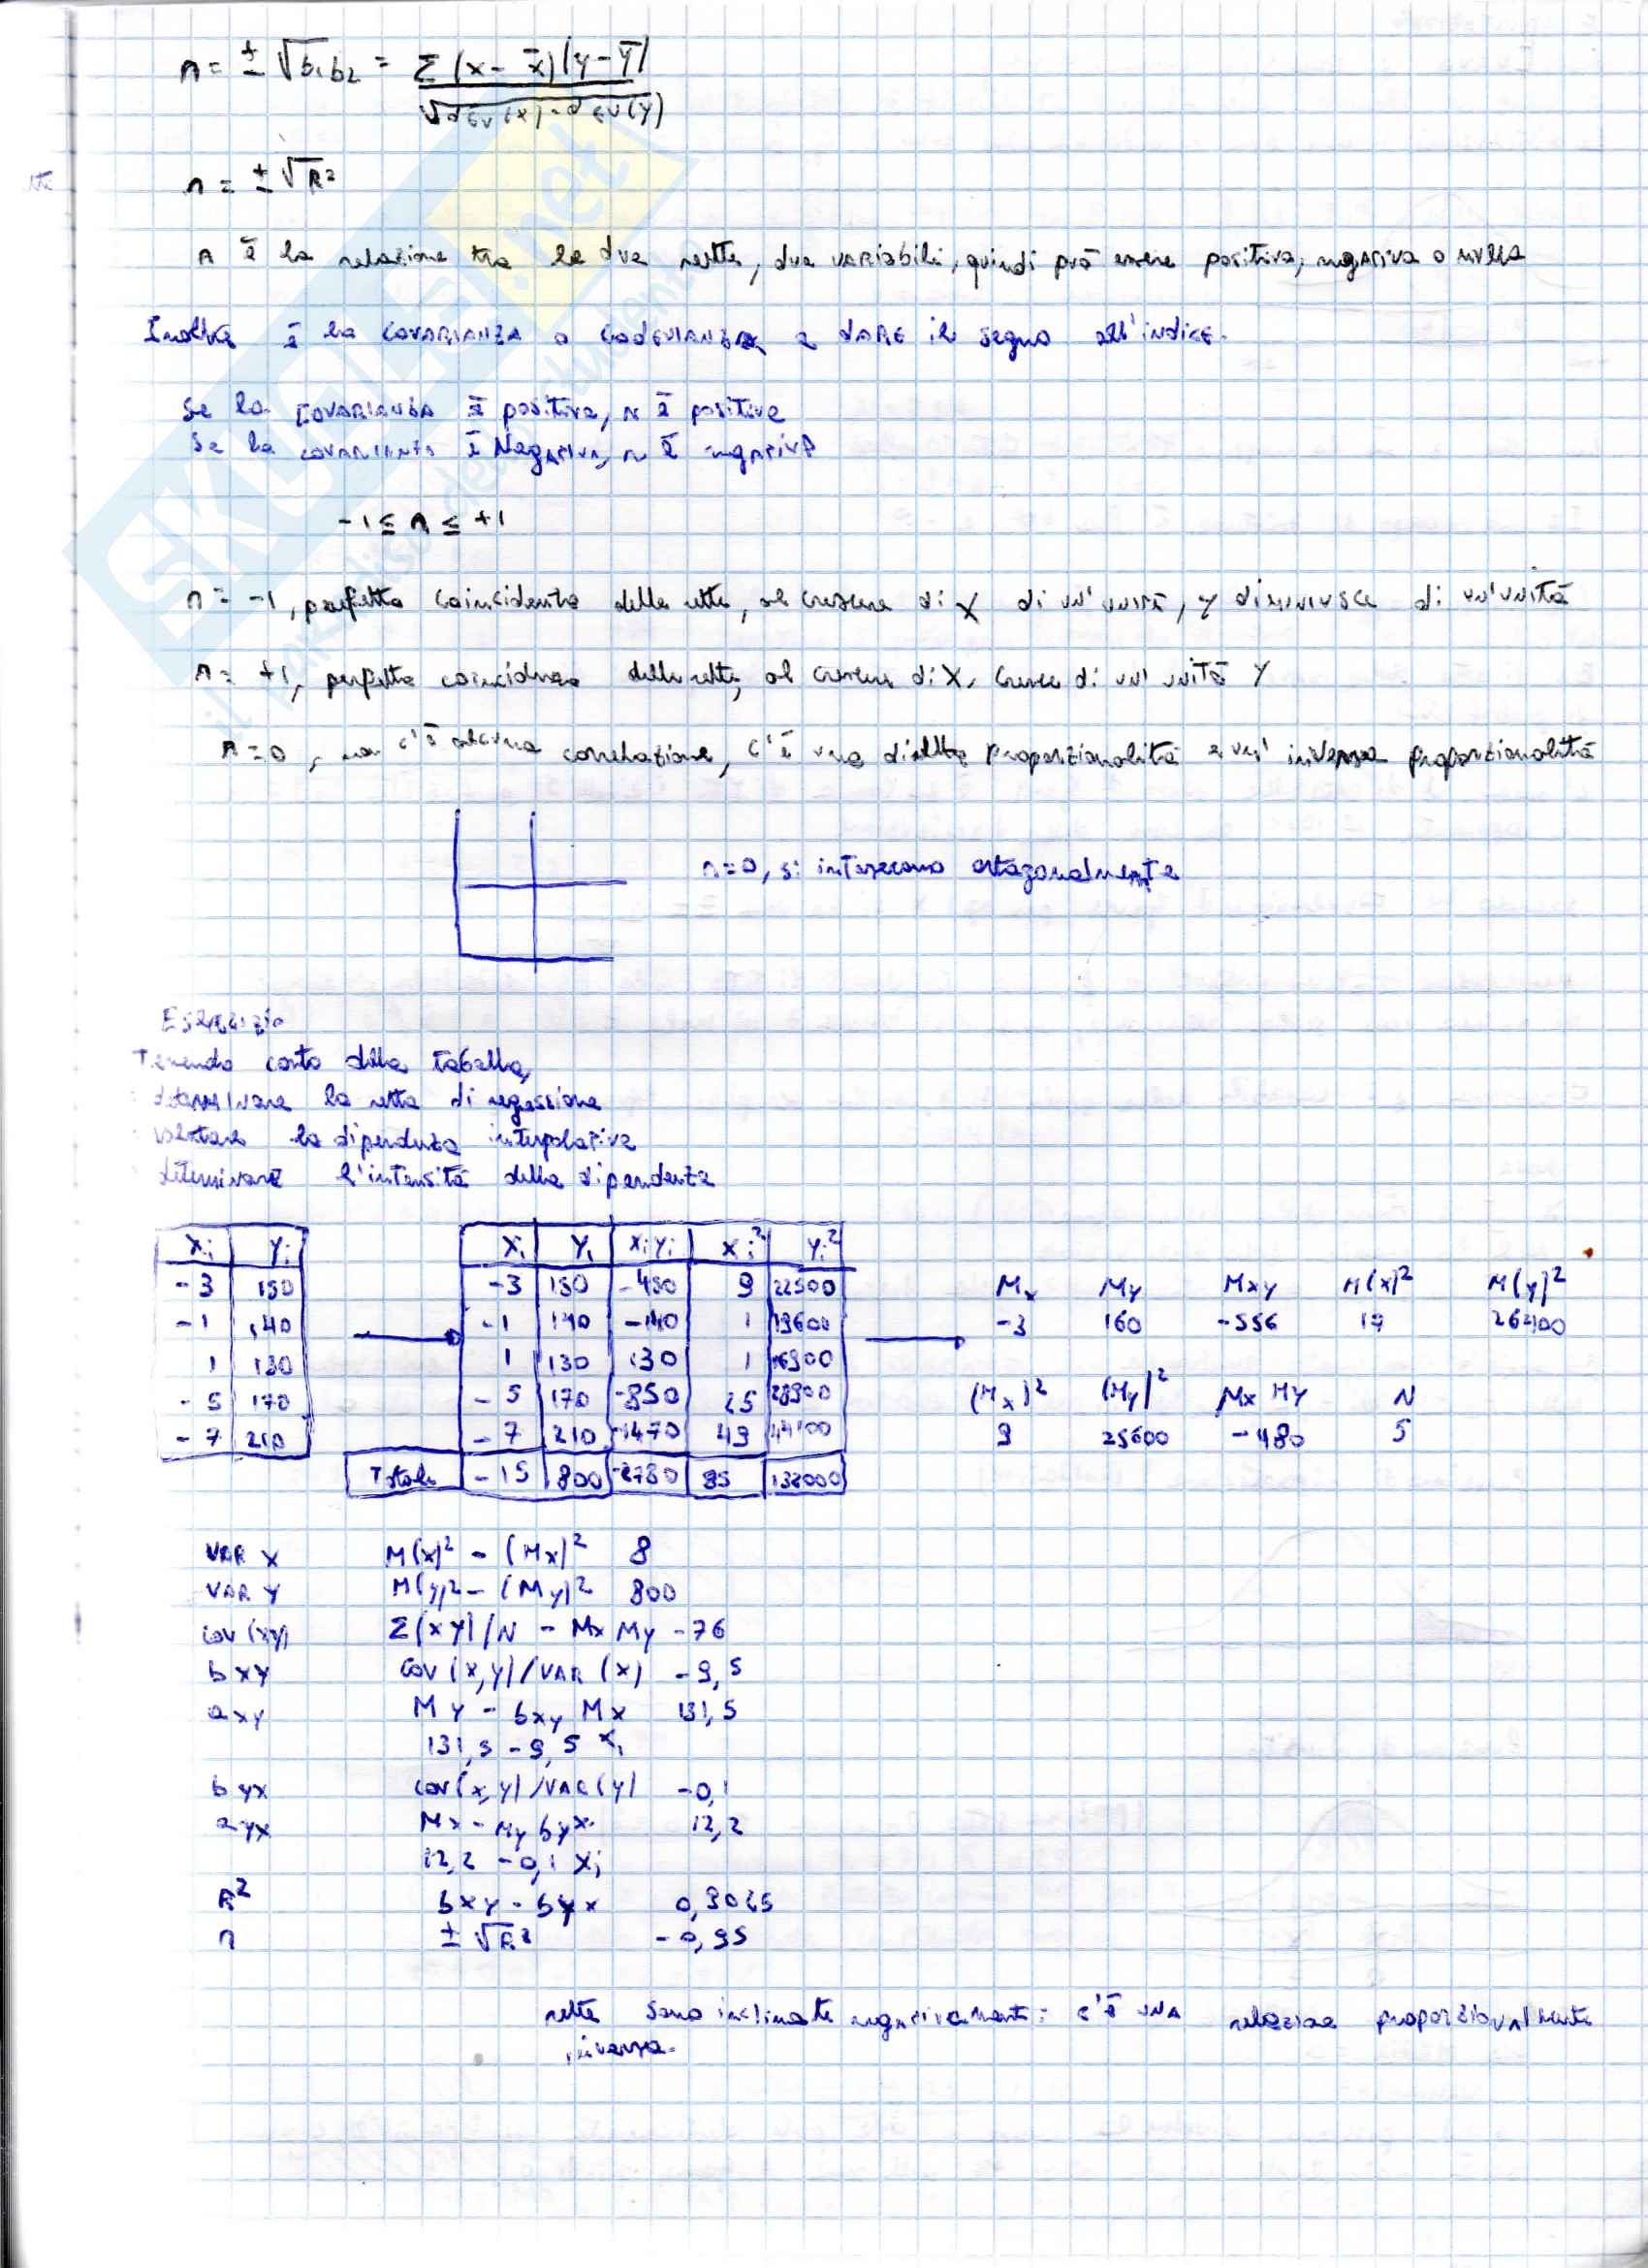 r = ± √b1b2 = Σ (x - x̄)(y - ȳ) / √dev(x) · dev(y)
r = ± √R²
r è la relazione tra le due rette, due variabili, quindi può essere positiva, negativa o nulla
Inoltre è la covarianza o codevianza a dare il segno all'indice.
Se la covarianza è positiva, r è positivo
Se la covarianza è negativa, r è negativo
-1 ≤ r ≤ +1
r = -1, perfetta coincidenza delle rette, al crescere di X di un'unità, y diminuisce di un'unità
r = +1, perfetta coincidenza delle rette, al crescere di X, cresce di un'unità Y
r = 0, non c'è alcuna correlazione, c'è una diretta proporzionalità e un'inversa proporzionalità
r = 0, si intersecano ortogonalmente
Esercizio
Tenendo conto della tabella,
determinare la retta di regressione
valutare la dipendenza interpolativa
determinare l'intensità della dipendenza
Xi Yi
-3 150
-1 140
1 130
-5 170
-7 210
Xi Yi XiYi Xi² Yi²
-3 150 -450 9 22500
-1 140 -140 1 19600
1 130 130 1 16900
-5 170 -850 25 28900
-7 210 -1470 49 44100
Totale -15 800 -2780 85 132000
Mx My Mxy M(x)² M(y)²
-3 160 -556 17 26400
(Mx)² (My)² Mx My N
9 25600 -480 5
VAR X M(x)² - (Mx)² 8
VAR Y M(y)² - (My)² 800
cov(xy) Σ(xy)/N - Mx My -76
bxy cov(x,y)/VAR(x) -9,5
axy My - bxy Mx 131,5
131,5 - 9,5 xi
byx cov(x,y)/VAR(y) -0,1
ayx Mx - My byx 12,2
12,2 - 0,1 xi
R² bxy · byx 0,9025
r ± √R² -0,95
rette sono inclinate negativamente: c'è una relazione proporzionalmente
inversa.
SKUOLA.net
il paradiso dello studente